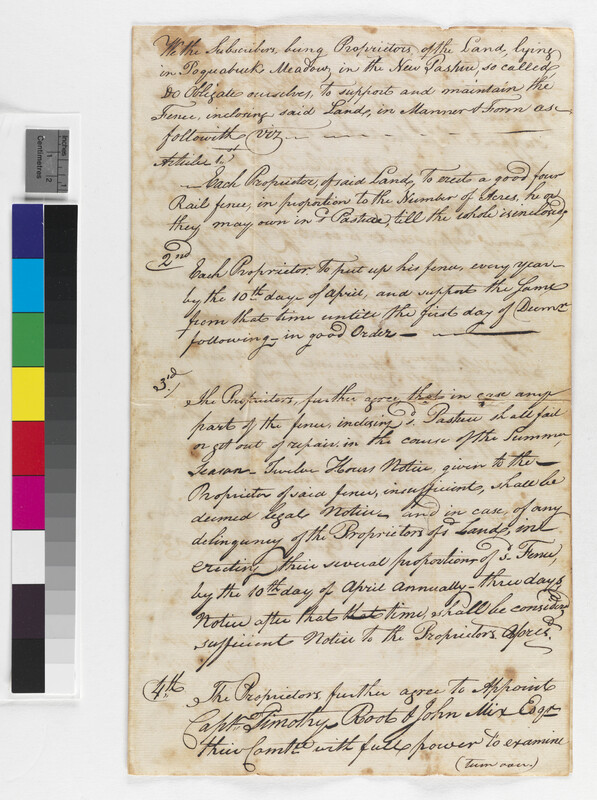 We the Subscribers, being Proprietors, of the Land, lying
in Poquabuck Meadow, in the New Pasture, so called,
do Obligate ourselves, to support and maintain the
Fence, inclosing said Land, in Manner & Form as
followith (viz
Article 1st
Each Proprietor, of said Land, To erects a good four
Rail fence, in proportion to the Number of Acres, he or
they may own in sd Pasture, till the whole is inclosed,
2nd
Each Proprietor to put up his fence, every year
by the 10th day of April, and support the Same
from that time untill the first day of Decemr
following - in good Order
3rd
The Proprietors, further agree, that in case any
part of the fence, inclosing sd Pasture shall fail
or get out of repair, in the course of the Summer
Season - Twelve Hours Notice, given to the
Proprietor of said fence, insufficient, shall be
deemed legal Notice - and in case, of any
delinquency of the Proprietors of sd Land, in
erecting their several proportions of sd Fence,
by the 10th day of April Annually - three days
Notice after that that time, shall be considerd
sufficient Notice to the Proprietors aforesd
4th
The Proprietors, further agree to Appoint
Capt Timothy Root & John Mix Esqr
their Comtee with full power to examine
(turn over.)
Inches
Centimetres
1
2